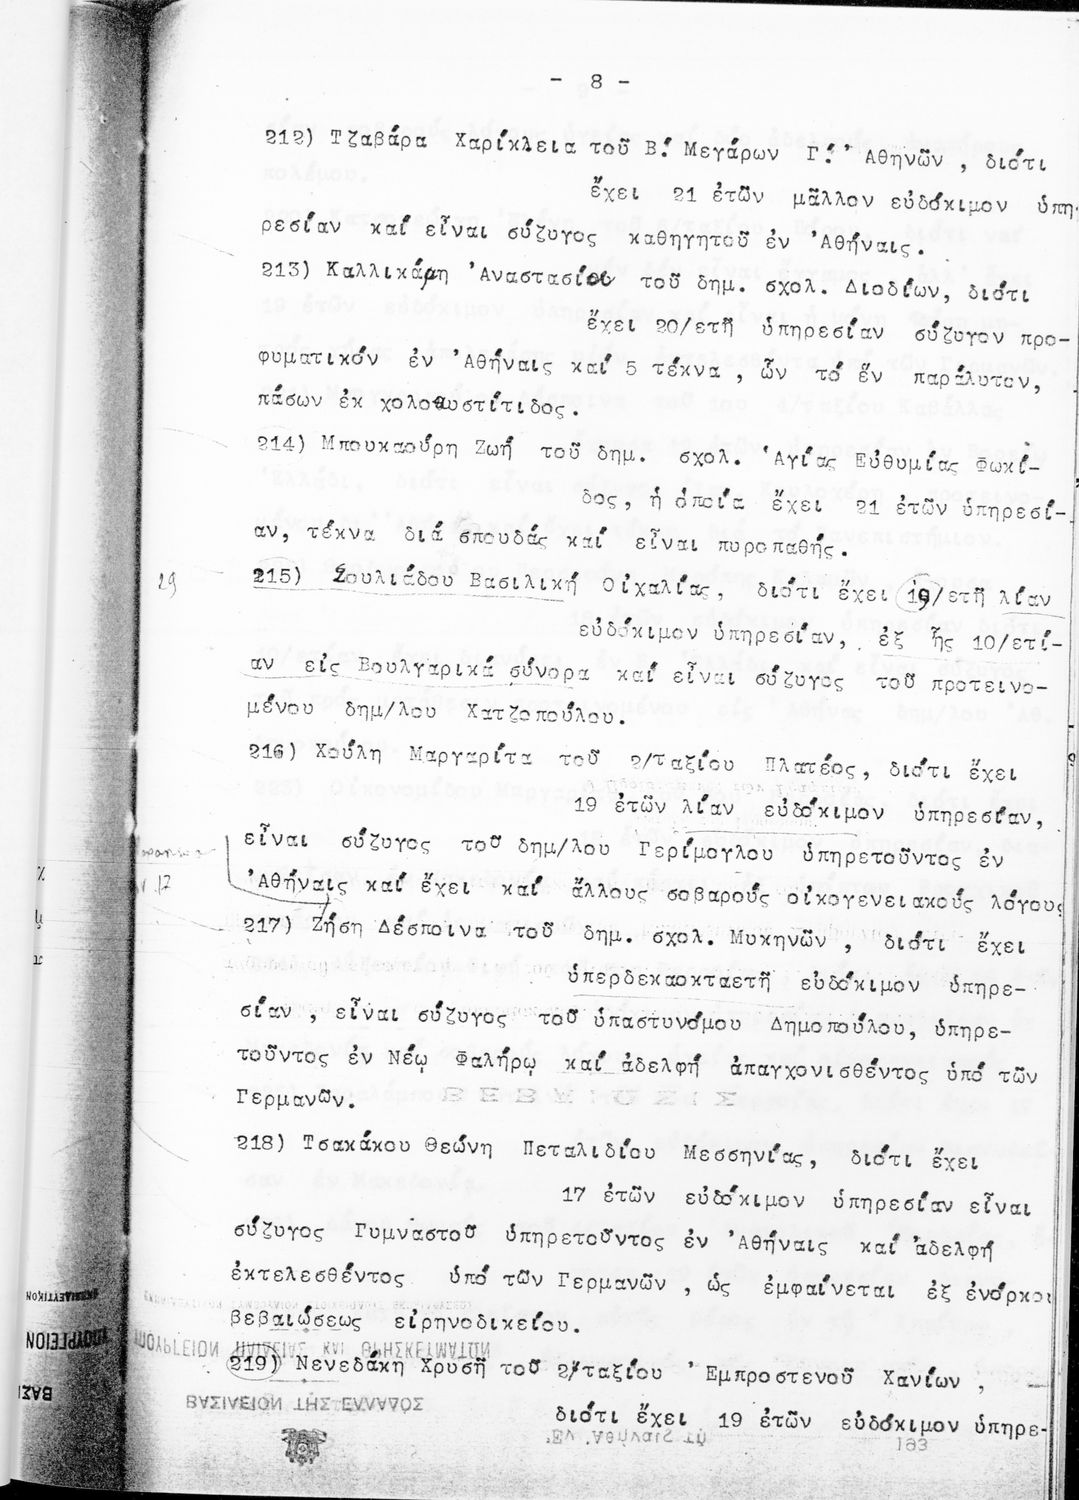 - 8 -
212) Τζαβάρα Χαρίκλεια τοῦ Β΄ Μεγάρων Γ΄ Ἀθηνῶν , διότι
ἔχει 21 ἐτῶν μᾶλλον εὐδόκιμον ὑπη
ρεσίαν καί εἶναι σύζυγος καθηγητοῦ ἐν Ἀθήναις.
213) Καλλικάρη Ἀναστασία τοῦ δημ. σχολ. Διοδίων, διότι
ἔχει 20/ετῆ ὑπηρεσίαν σύζυγον προ-
φυματικόν ἐν Ἀθήναις καί 5 τέκνα , ὧν τό ἕν παράλυτον,
πάσων ἐκ χολοκυστίτιδος.
214) Μπουκαούρη Ζωή τοῦ δημ. σχολ. Ἁγίας Εὐθυμίας Φωκί-
δος, ἡ ὁποία ἔχει 21 ἐτῶν ὑπηρεσί-
αν, τέκνα διά σπουδάς καί εἶναι πυροπαθής.
29
215) Σουλιάδου Βασιλική Οἰχαλίας, διότι ἔχει 19/ετῆ λίαν
εὐδόκιμον ὑπηρεσίαν, ἐξ ἧς 10/ετί-
αν εἰς Βουλγαρικά σύνορα καί εἶναι σύζυγος τοῦ προτεινο-
μένου δημ/λου Χατζοπούλου.
216) Χούλη Μαργαρίτα τοῦ 2/ταξίου Πλατέος, διότι ἔχει
19 ἐτῶν λίαν εὐδόκιμον ὑπηρεσίαν,
εἶναι σύζυγος τοῦ δημ/λου Γερίμογλου ὑπηρετοῦντος ἐν
Ἀθήναις καί ἔχει καί ἄλλους σοβαρούς οἰκογενειακούς λόγους
217) Ζήση Δέσποινα τοῦ δημ. σχολ. Μυκηνῶν , διότι ἔχει
ὑπερδεκαοκταετῆ εὐδόκιμον ὑπηρε-
σίαν , εἶναι σύζυγος τοῦ ὑπαστυνόμου Δημοπούλου, ὑπηρε-
τοῦντος ἐν Νέῳ Φαλήρῳ καί ἀδελφή ἀπαγχονισθέντος ὑπό τῶν
Γερμανῶν.
218) Τσακάκου Θεώνη Πεταλιδίου Μεσσηνίας, διότι ἔχει
17 ἐτῶν εὐδόκιμον ὑπηρεσίαν εἶναι
σύζυγος Γυμναστοῦ ὑπηρετοῦντος ἐν Ἀθήναις καί ἀδελφή
ἐκτελεσθέντος ὑπό τῶν Γερμανῶν , ὡς ἐμφαίνεται ἐξ ἐνόρκου
βεβαιώσεως εἰρηνοδικείου.
219) Νενεδάκη Χρυσῆ τοῦ 2/ταξίου Ἐμπροστενοῦ Χανίων ,
διότι ἔχει 19 ἐτῶν εὐδόκιμον ὑπηρε-